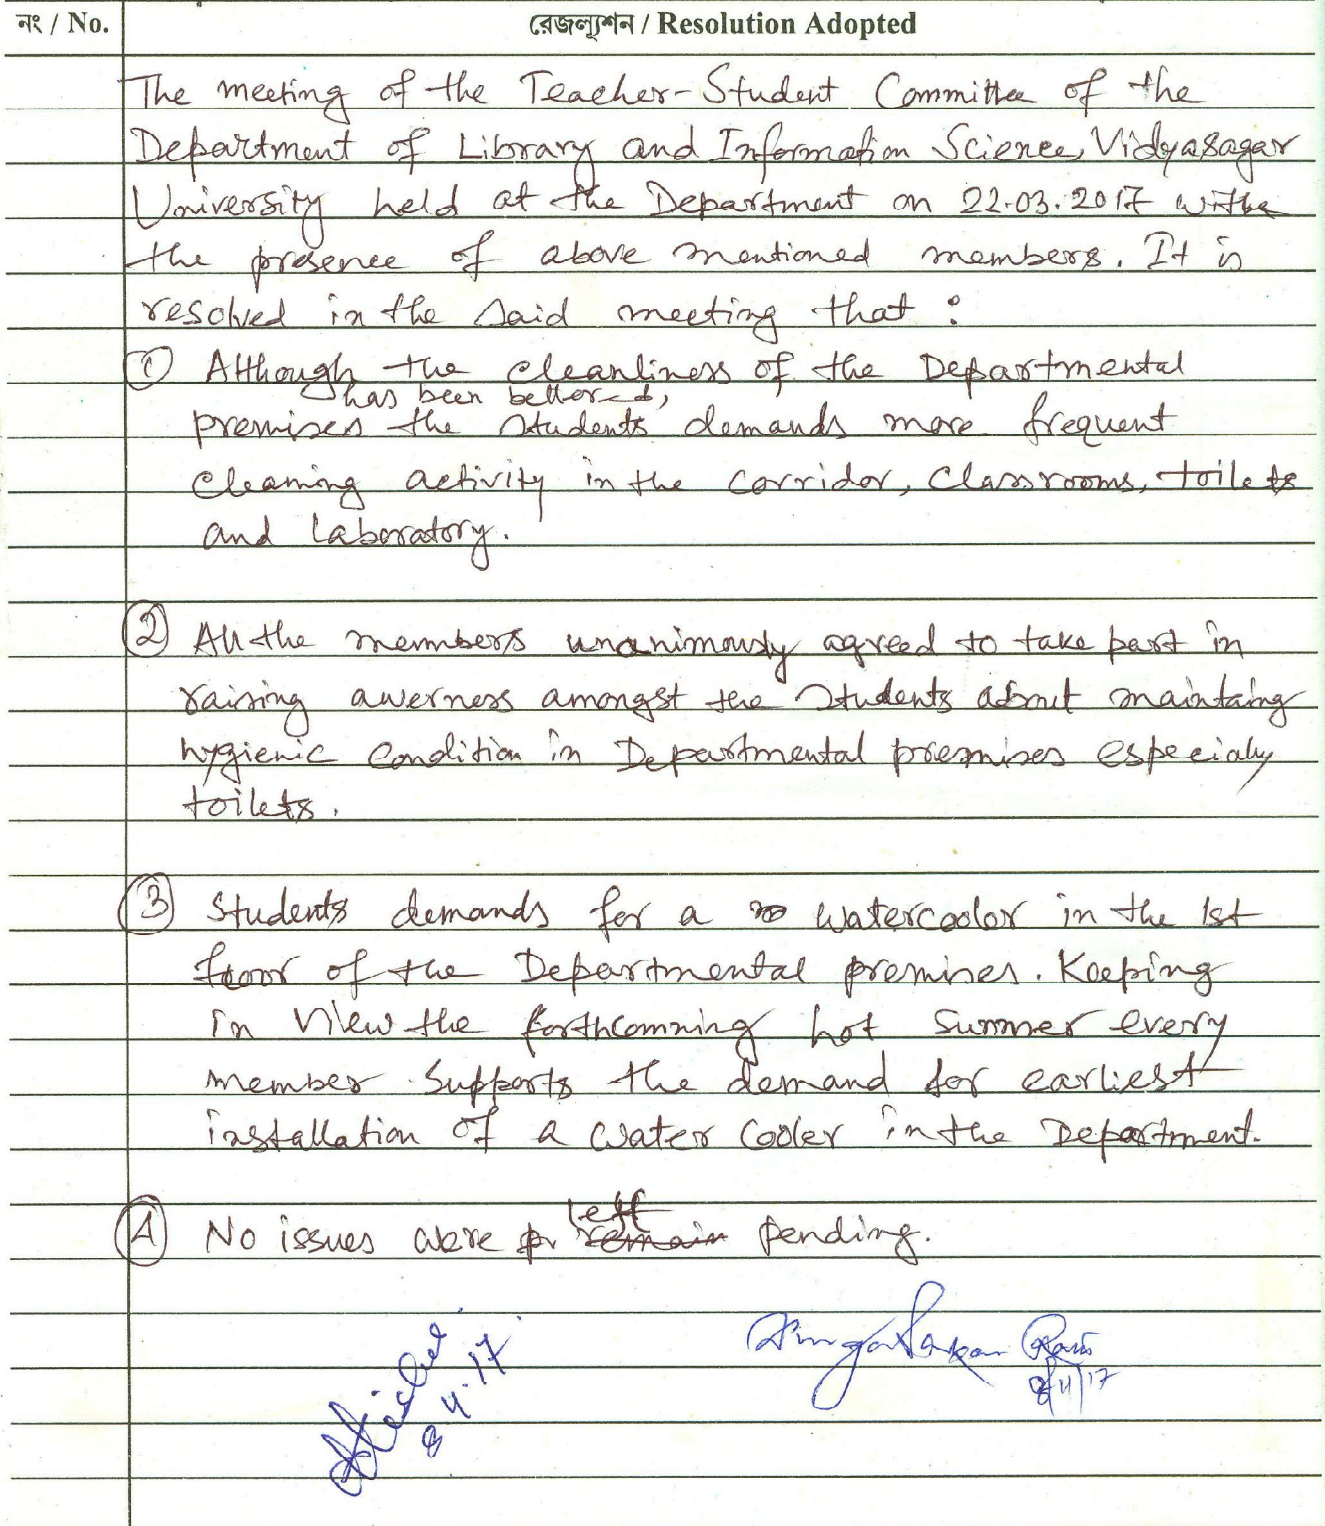 নং / No. রেজল্যূশন / Resolution Adopted
The meeting of the Teacher-Student Committee of the
Department of Library and Information Science, Vidyasagar
University held at the Department on 22.03.2017 withe
the presence of above mentioned members. It is
resolved in the said meeting that :
① Although the cleanliness of the Departmental
has been bettered,
premises the students demands more frequent
cleaning activity in the corridor, classrooms, toilets
and laboratory.
② All the members unanimously agreed to take part in
raising awerness amongst the students about maintaing
hygienic condition in Departmental premises especialy
toilets.
③ Students demands for a watercooler in the 1st
floor of the Departmental premises. Keeping
in view the forthcomning hot summer every
member supports the demand for earliest
installation of a water cooler in the Department.
④ No issues were pr remain left pending.
8.4.17
8/4/17